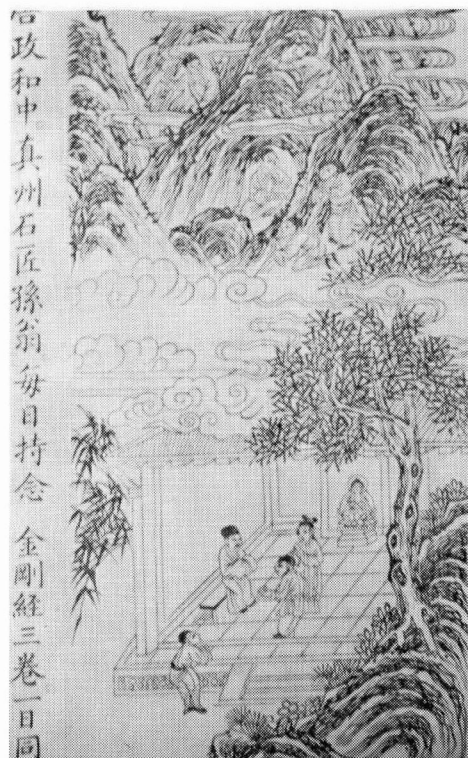 宋政和中真州石匠孫翁每日持念 金剛経三卷一日同